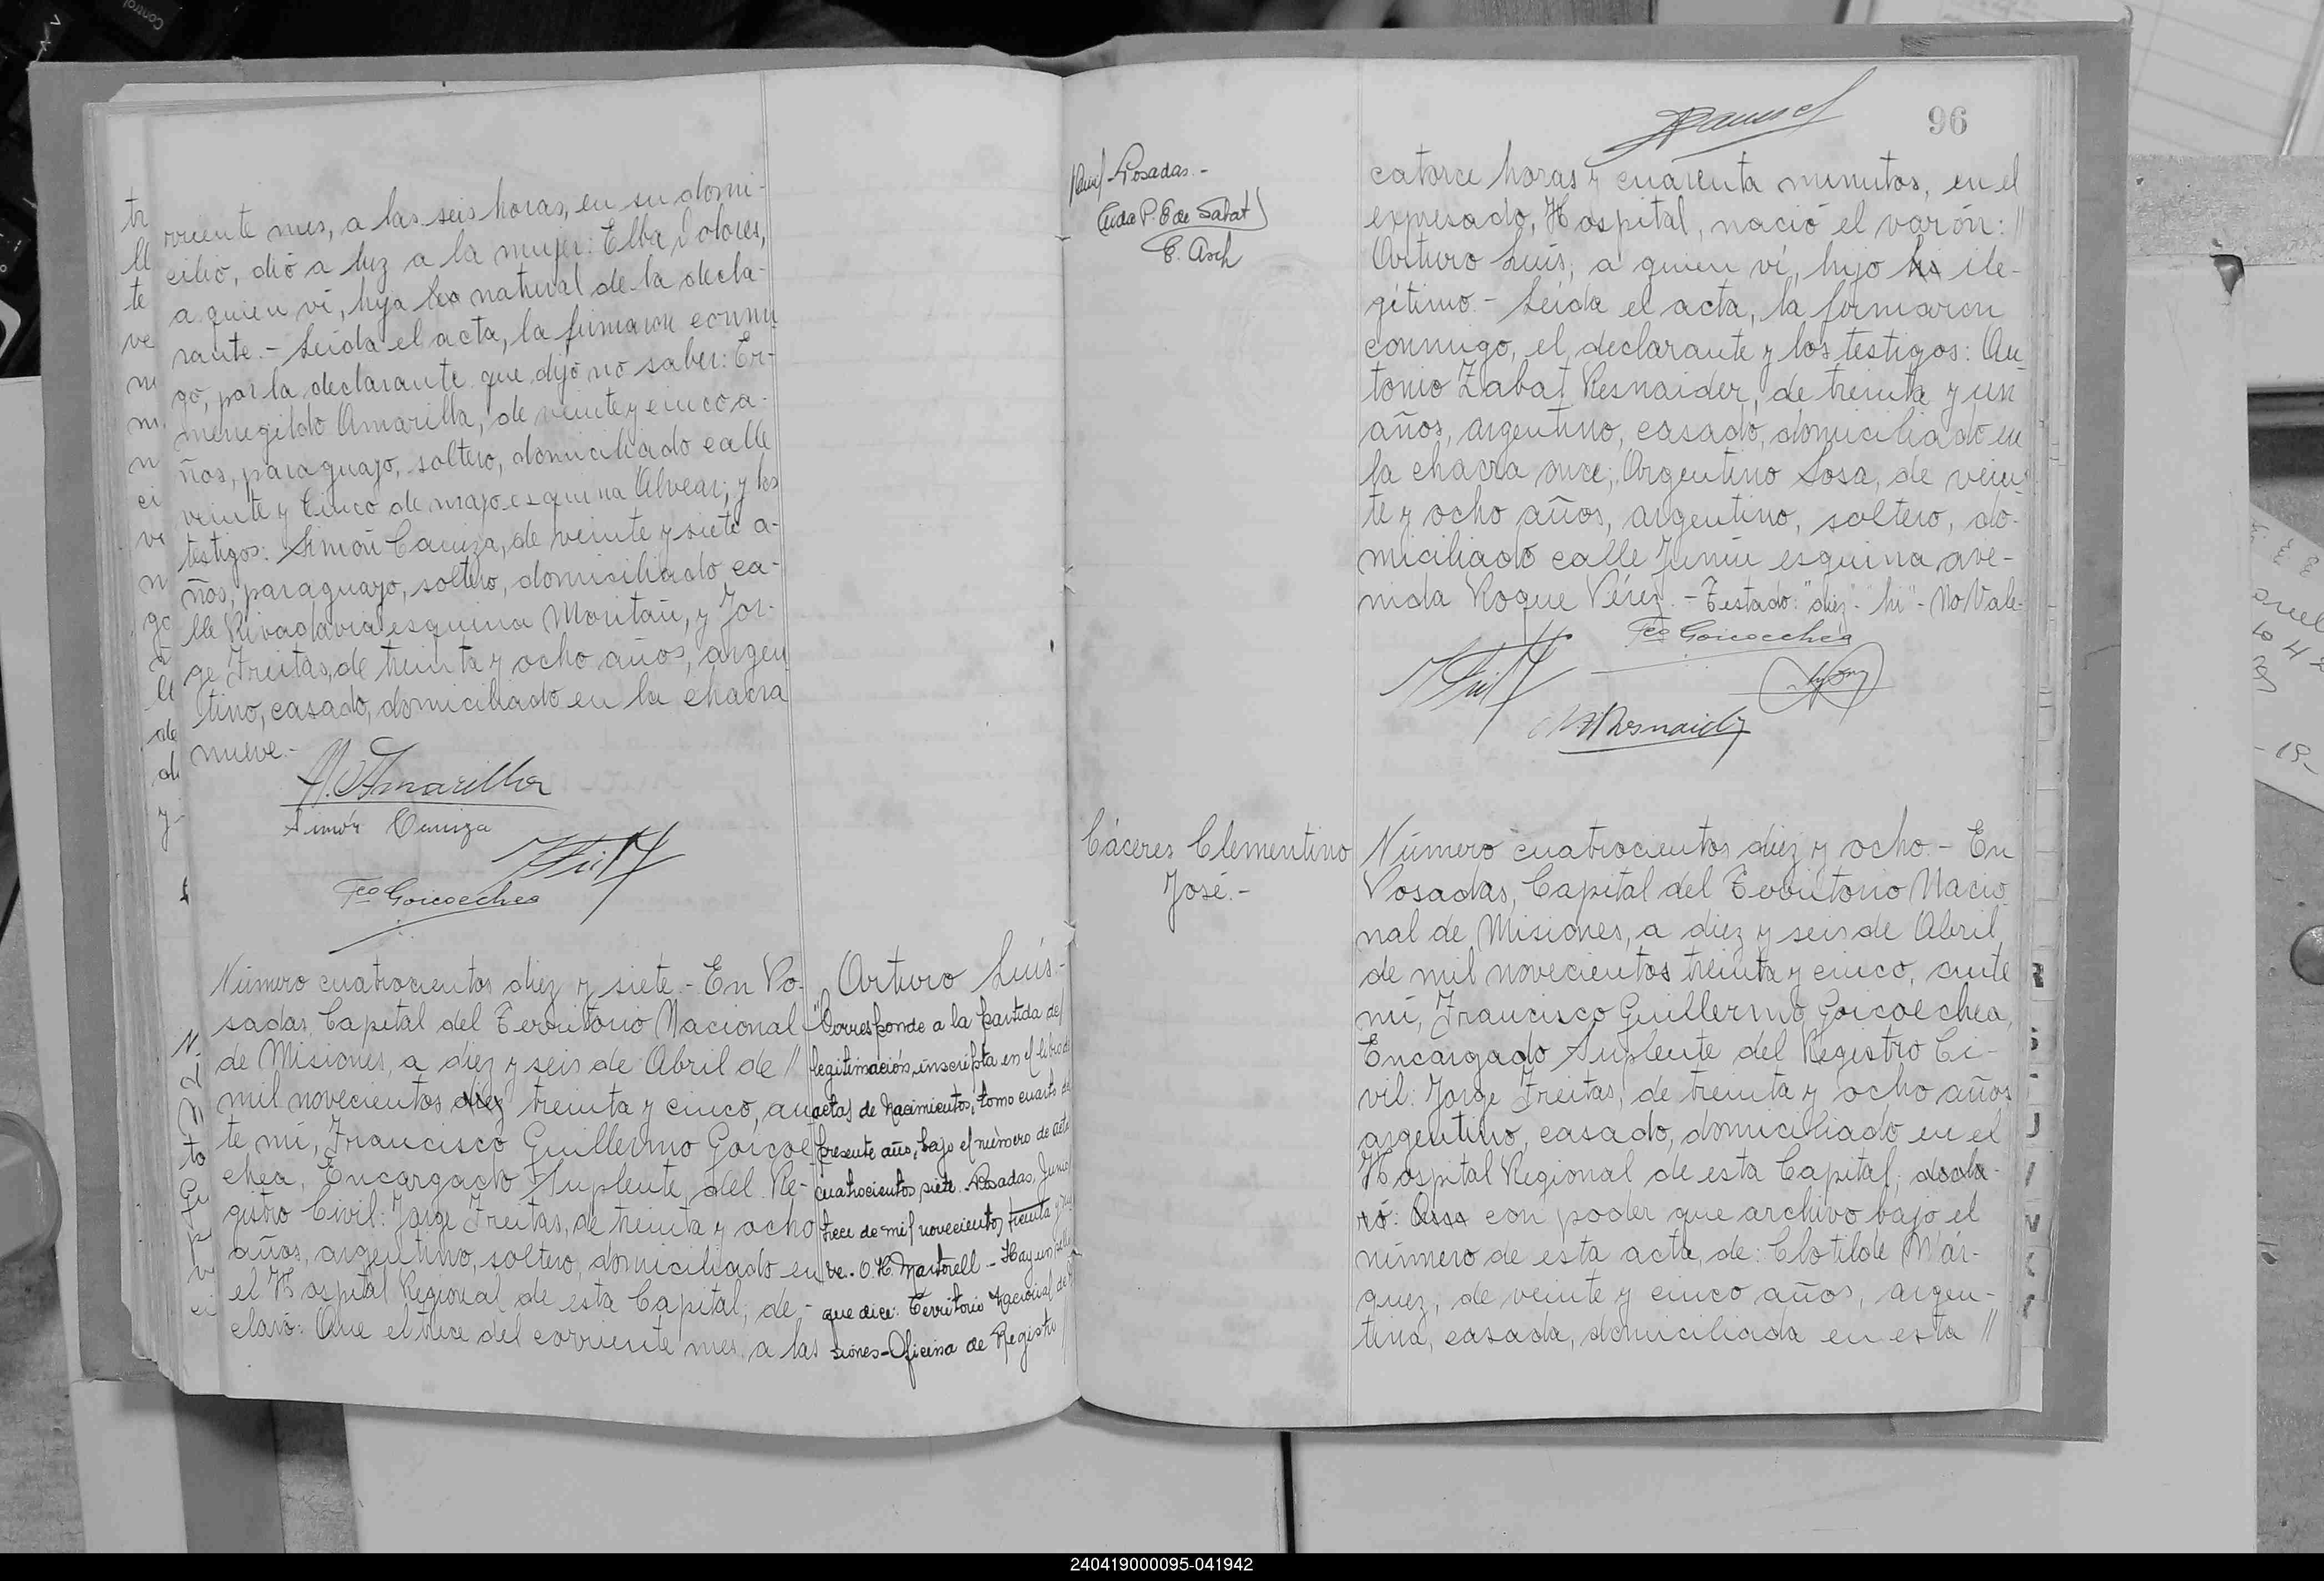 rriente mes, a las seis horas, en su domi-
cilio, dió a luz a la mujer: Elba Dolores,
a quien ví, hija natural de la decla-
rante.- Leída el acta, la firmaron conmi
go, por la declarante que dijo no saber: Er-
menegildo Amarilla, de veinte y cinco a-
ños, paraguayo, soltero, domiciliado calle
veinte y Cinco de mayo esquina Alvear; y los
testigos: Simón Caniza, de veinte y siete a-
ños, paraguayo, soltero, domisiliado ca-
lle Rivadavia esquina Moritán, y Jor-
ge Freitas, de treinta y ocho años, argen
tino, casado, domiciliado en la chacra
nueve.-
Amarilla
Simón Caniza
Fco Goicoechea
Número cuatrocientos diez y siete.- En Po-
sadas, Capital del Territorio Nacional
de Misiones, a diez y seis de Abril de //
mil novecientos diez treinta y cinco, an
te mí, Francisco Guillermo Goicoe
chea, Encargado Suplente del Re-
gistro Civil: Jorge Freitas, de treinta y ocho
años, argentino, soltero, domiciliado en
el Hospital Regional de esta Capital; de-
claró: Que el trece del corriente mes, a las
Arturo Luís.-
"Corresponde a la partida de
legitimación, inscripta en el libro de
actas de Nacimientos, tomo cuarto del
presente año, bajo el número de acta
cuatrocientos siete. Posadas, Junio
trece de mil novecientos treinta y
ve.- O. H. Martorell - Hay un sello
que dice: Territorio Nacional de Mi
siones-Oficina de Registro
96
Posadas.-
E. Asch
catorce horas y cuarenta minutos, en el
expresado, Hospital, nació el varón: //
Arturo Luis, a quien ví, hijo hi ile-
gítimo - Leída el acta, la firmaron
conmigo, el declarante y los testigos: An
tonio Zabat Resnaider, de treinta y un
años, argentino, casado, domiciliado en
la chacra once; Argentino Sosa, de vein
te y ocho años, argentino, soltero, do-
miciliado calle Junín esquina ave-
nida Roque Pérez.- Testado: "diez"- "hi"- No Vale-
Fco Goicoechea
Cáceres Clementino
José.-
Número cuatrocientos diez y ocho.- En
Posadas, Capital del Territorio Nacio
nal de Misiones, a diez y seis de Abril
de mil novecientos treinta y cinco, ante
mí, Francisco Guillermo Goicoechea,
Encargado Suplente del Registro Ci-
vil: Jorge Freitas, de treinta y ocho años
argentino, casado, domiciliado en el
Hospital Regional de esta Capital; decla-
ró: Que con poder que archivo bajo el
número de esta acta, de: Clotilde Már-
quez, de veinte y cinco años, argen-
tina, casada, domiciliada en esta //
240419000095-041942